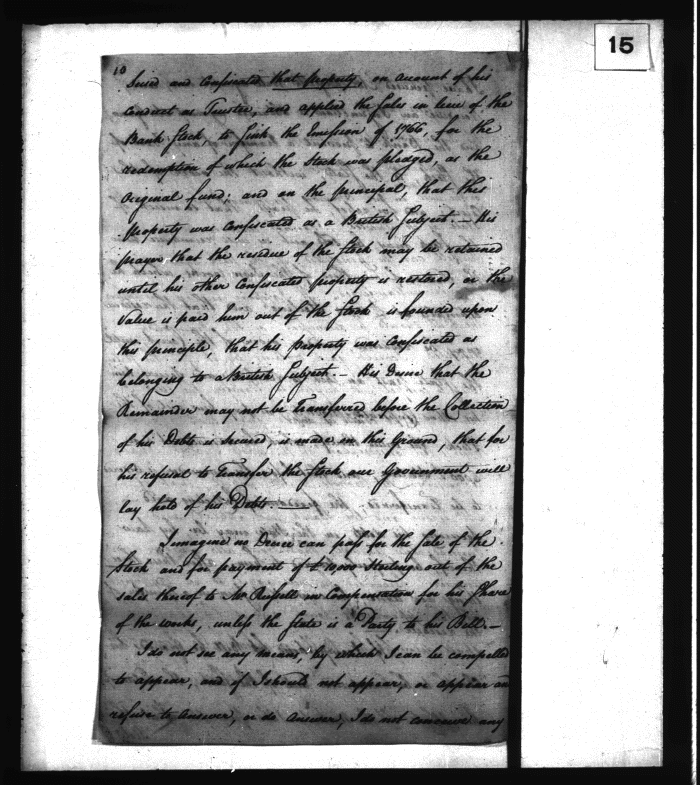 15
10
Seised and confiscated that property, on account of his
conduct as Trustee, and applied the Sales in lieu of the
Bank Stock, to Sink the Emission of 1766, for the
redemption of which the Stock was pledged, as the
Original fund; and on the principal, that this
property was confiscated as a British Subject. — His
prayer, that the residue of the Stock may be retained
until his other confiscated property is restored, or the
Value is paid him out of the Stock is founded upon
this principle, that his property was confiscated as
belonging to a British Subject. — His Desire that the
Remainder may not be Transferred before the Collection
of his Debts is secured, is made on this Ground, that for
his refusal to Transfer the Stock our Government will
lay hold of his Debts. —
I imagine no Decree can pass for the Sale of the
Stock and for payment of £ 10,000 Sterling out of the
sales thereof to Mr. Russell in Compensation for his Share
of the works, unless the State is a Party to his Bill. —
I do not see any means, by which I can be compelled
to appear, and if I should not appear, or appear and
refuse to Answer, or do Answer, I do not conceive any